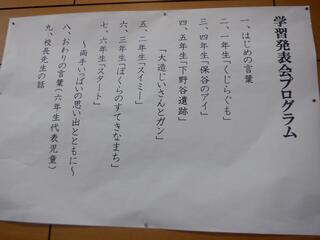 学習発表会プログラム
一、はじめの言葉
二、一年生「くじらぐも」
三、四年生「保谷のアイ」
四、五年生「下野谷遺跡」
「大造じいさんとガン」
五、二年生「スイミー」
六、三年生「ぼくらのすてきなまち」
七、六年生「スタート」
～両手いっぱいの思い出とともに～
八、おわりの言葉(六年生代表児童)
九、校長先生の話